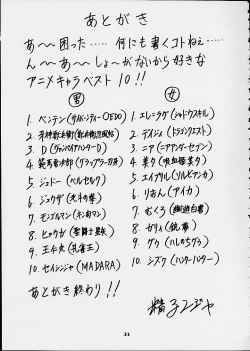 あとがき
あ〜〜困った‥‥‥ 何にも書くコトねぇ‥‥
ん〜〜あ〜〜しょ〜がないから好きな
アニメキャラベスト10!!
男
1. ベンテン(サイバーシティーOEDO)
2. 牙神幻十郎
3. D(バンパイアハンターD)
4. 範馬勇次郎(グラップラー刃牙)
5. ゾッド(ベルセルク)
6. ジュウザ(北斗の拳)
7. モンゴルマン(キン肉マン)
8. ヒョウガ(聖闘士星矢)
9. 王仁丸(孔雀王)
10. セイシンジャ(MADARA)
女
1. エレ=ラグ(シャドウスキル)
2. デイジィ(ドラゴンクエスト)
3. ニア(ニアアンダーセブン)
4. 美夕(吸血姫美夕)
5. エイプリル(ソルビアンカ)
6. りおん(アイカ)
7. むくろ(幽遊白書)
8. ガリィ(銃夢)
9. グゥ(ハレのちグゥ)
10. シズク(ハンターハンター)
あとがき終わり!!
精子ンジャ
33